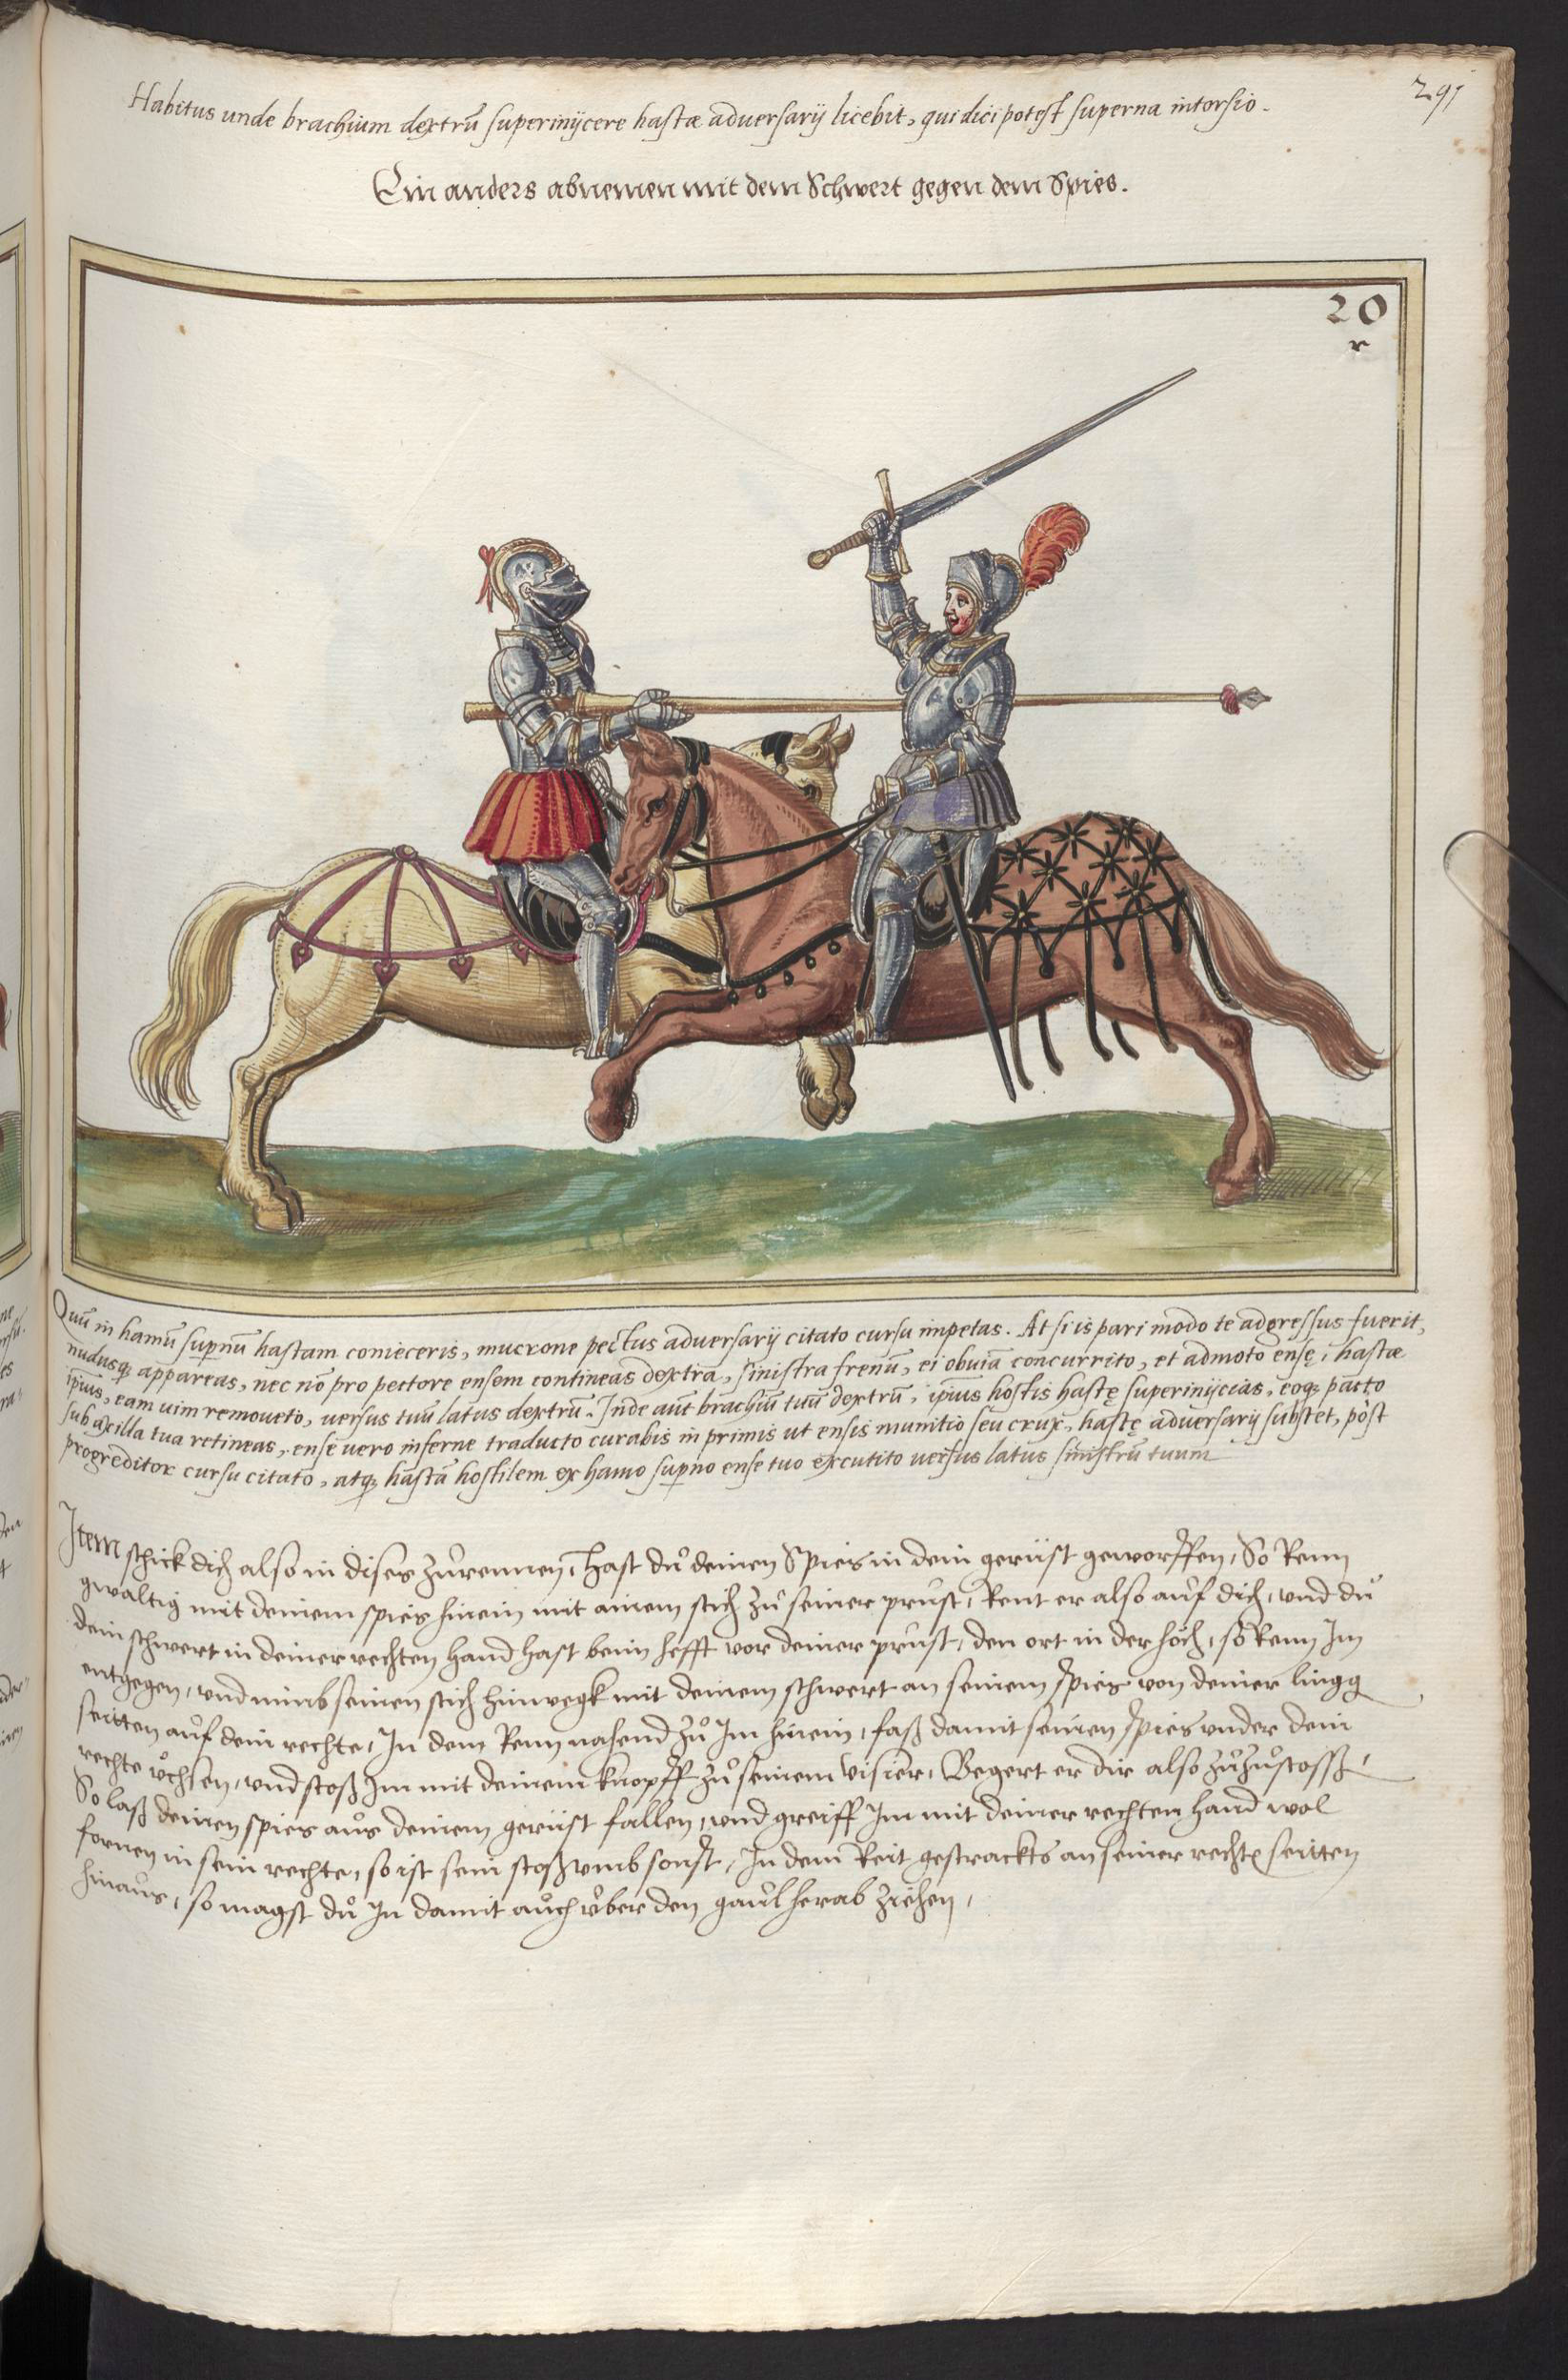 291
Habitus unde brachium dextrũ superinijcere hastæ adversarij licebit, qui dici potest superna intorsio.
Ein anders abnemen mit dem Schwert gegen dem Spies.
20
r
Quũ in hamũ sup̱nũ hastam conieceris, mucrone pectus adversarij citato cursu impetas. At si is pari modo te adgressus fuerit,
nudusq̃ appareas, nec nõ pro pectore ensem contineas dextra, sinistra frenũ, ei obuiã concurrito, et admoto ensę, hastæ
ip̃ius, eam uim remoueto, uersus tuũ latus dextrũ. Inde aũt brachiũ tuũ dextrũ, ip̃ius hostis hastę superinijcias, eoq̃ pacto
sub axilla tua retineas, ense uero inferne traducto curabis in primis ut ensis munitio seu crux, hastę adversarij substet, pòst
progreditor cursu citato, atq̃ hastã hostilem ex hamo sup̱no ense tuo excutito uersus latus sinistrũ tuum
Item schick dich also in dises zůrennen, hast dů deinen Spies in dein gerüst geworffen, So Renn
gwaltig mit deinem spies hinein mit ainem stich zů seiner prust, Rent er also auf dich, und dů
dein schwert in deiner rechten hand hast beim hefft vor deiner prust, den ort in der höch, so Renn Im
entgegen, und nimb seinen stich hinwegk mit deinem schwert an seinem spies von deiner lingg
seitten auf dein rechte, In dem Renn nahend zů Im hinein, faß damit seinen spies under dein
rechte üchsen, und stoß Im mit deinem knopff zů seinem visier, Begert er dir also zůzůstossẽ,
So laß deinen spies aus deinem gerüst fallen, und greiff Im mit deiner rechten hand wol
fornen in sein rechte, so ist sein stoß umb sonst, In dem Reit gestrackts an seiner rechtẽ seitten
hinaus, so magst dů In damit auch über den gaul herab ziehen,